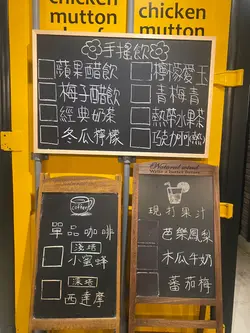 chicken
mutton
chicken
mutton
手搖飲
蘋果醋飲
檸檬愛玉
梅子醋飲
青梅青
經典奶茶
熱帶水果茶
冬瓜檸檬
coffee
單品咖啡
淺焙
小蜜蜂
深焙
西達摩
Natural wood
現打果汁
芭樂鳳梨
木瓜牛奶
蕃茄梅